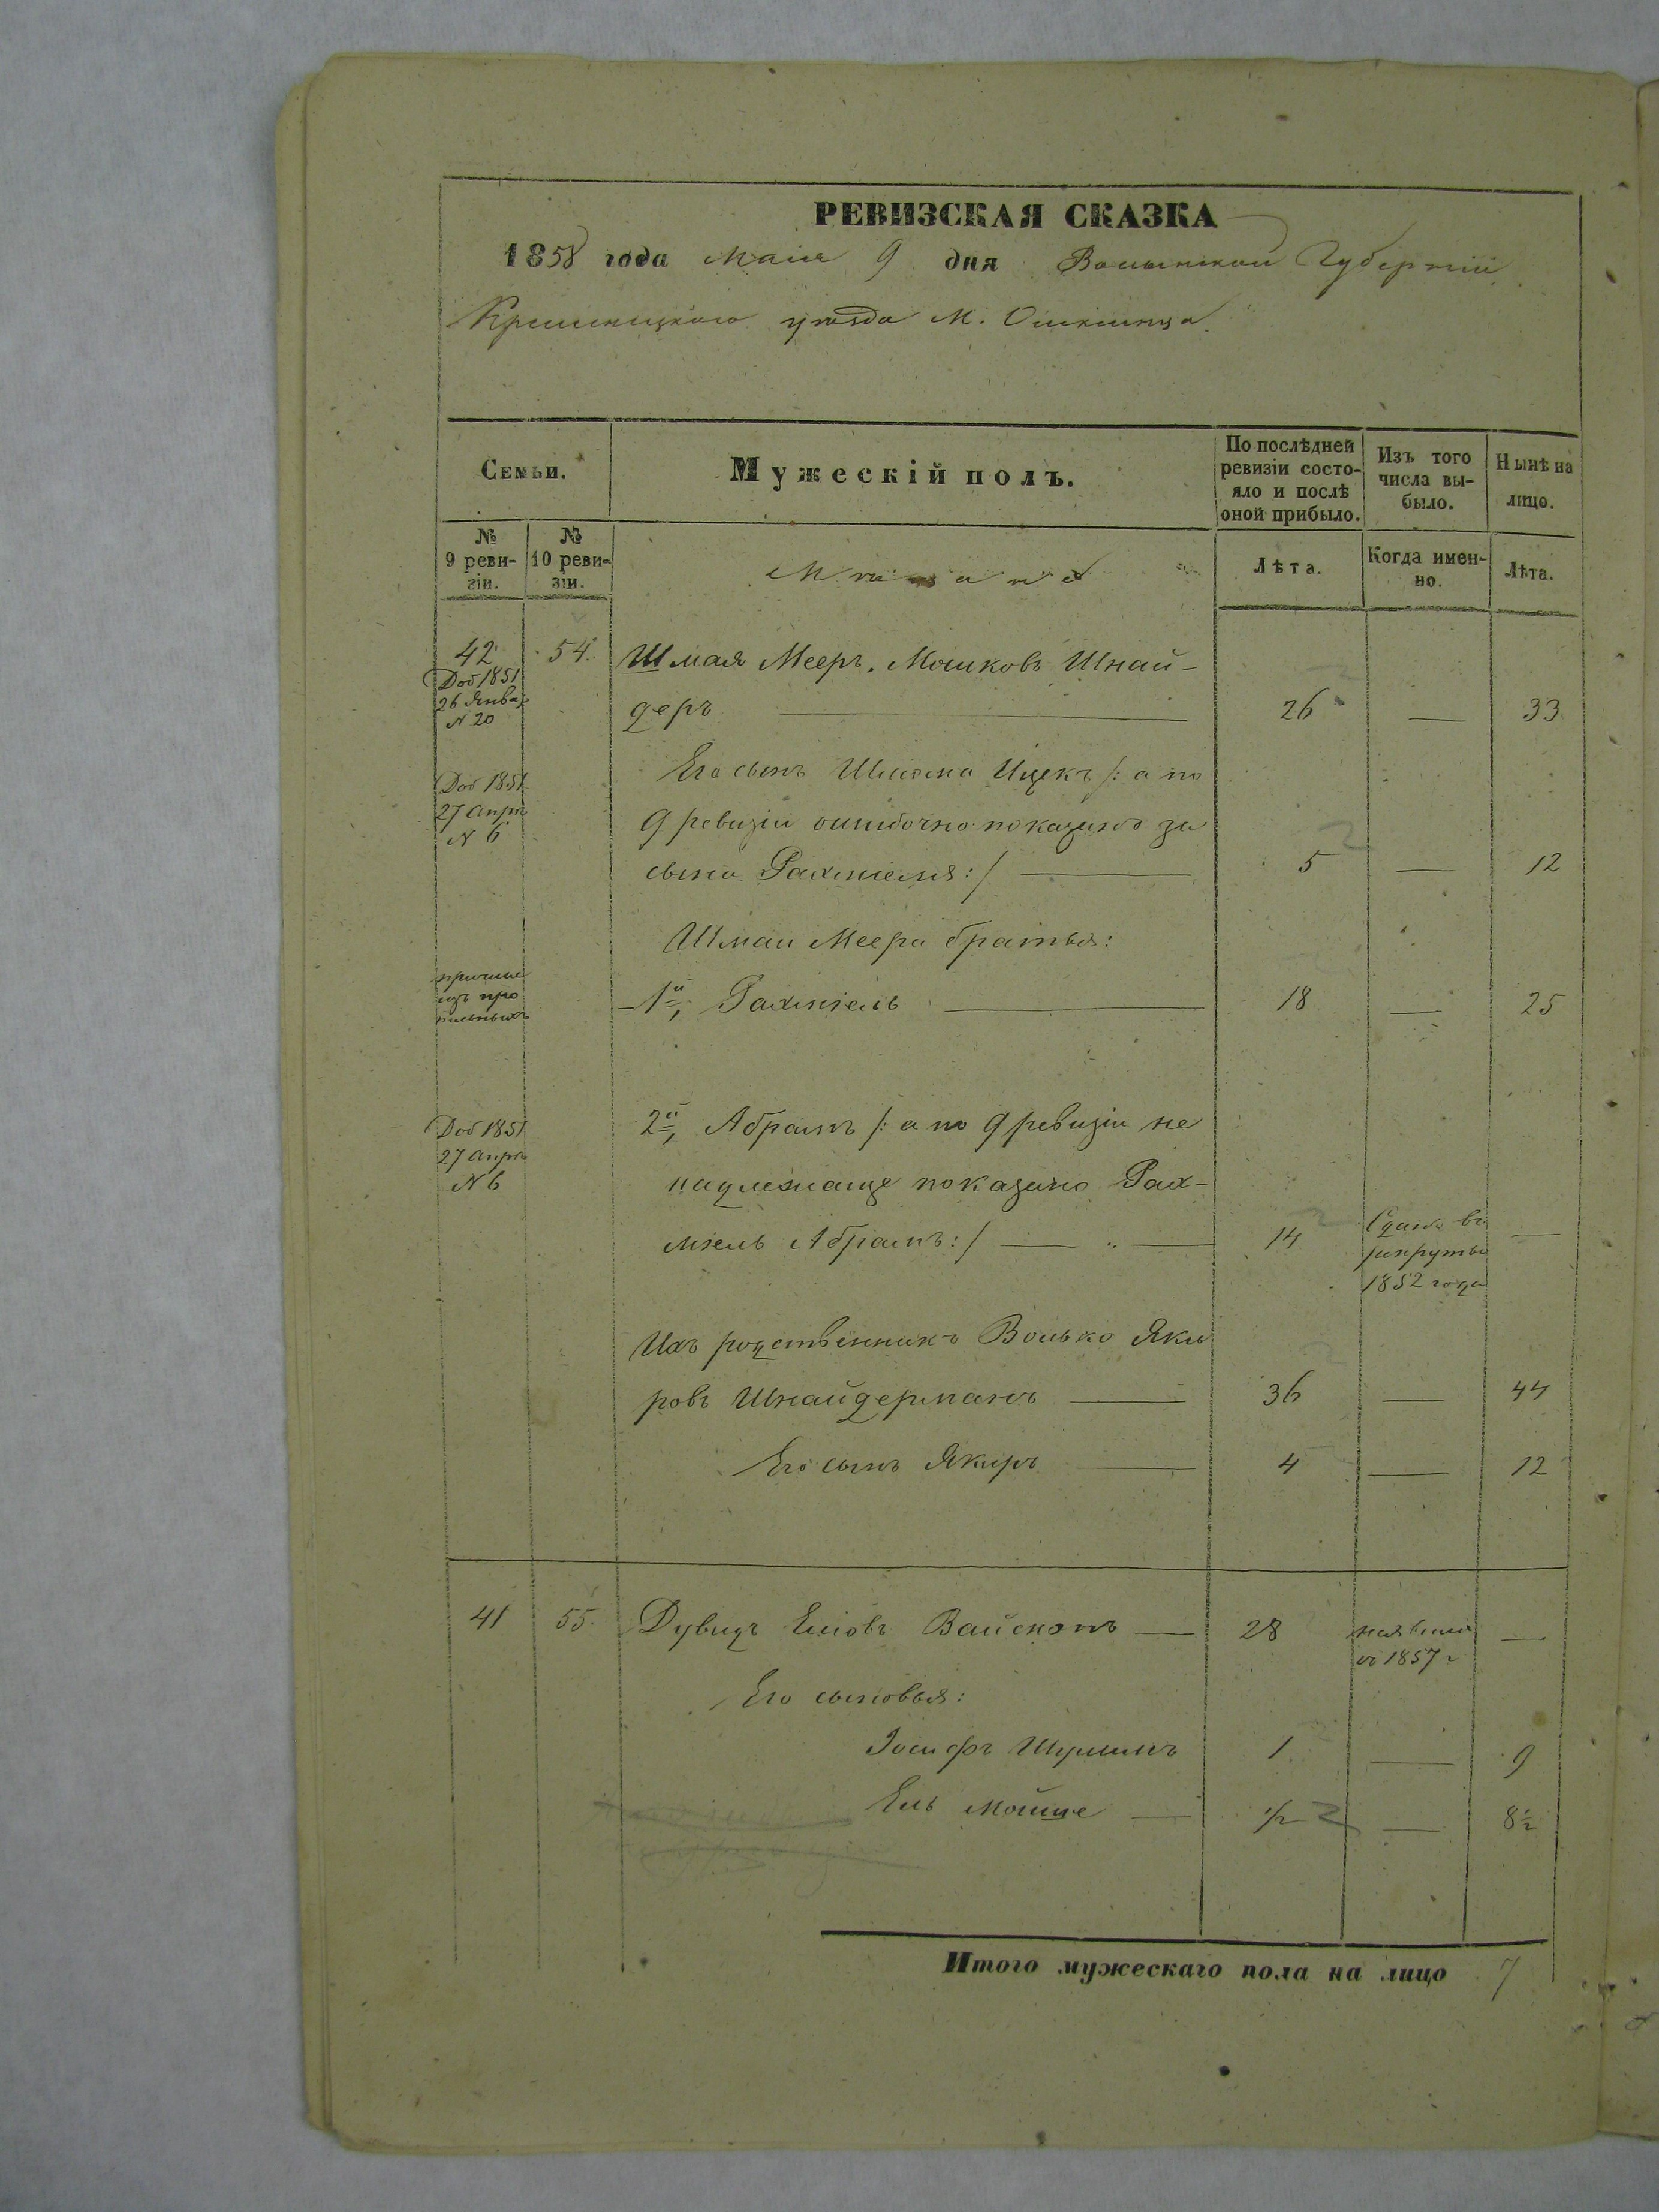 РЕВИЗСКАЯ СКАЗКА
1858 года Маія 9 дня Волынской Губерніи
Кременецкаго уѣзда М.
Семьи.
Мужескій полъ.
По послѣдней ревизіи состояло и послѣ оной прибыло.
Изъ того числа выбыло.
Нынѣ на лицо.
№ 9 ревизіи.
№ 10 ревизіи.
Мѣщане
Лѣта.
Когда именно.
Лѣта.
42 54. Шмая Мееръ Мошковъ Шнай-
Доб 1851
26 Янв
N 20
деръ 26 — 33
Его сынъ Шлиома Ицекъ /: а по
Доб 1851
27 Апрѣ
N 6
9 ревизіи ошибочно показано за
сына Рахміеля :/ 5 — 12
Шмаи Меера братья:
1й, Рахміель 18 — 25
изъ про
пис­ныхъ
2й, Абрамъ /: а по 9 ревизіи не
Доб 1851
27 Апрѣ
N 6
надлежаще показано Рах-
міель Абрамъ :/ 14 Сданъ въ —
рекруты
1852 года
Ихъ родственникъ Волько Яки
ровъ Шнайдерманъ 36 — 44
Его сынъ Якиръ 4 — 12
41 55. Дувидъ Еліовъ 28 —
въ 1857 г
Его сыновья:
Іосифъ 1 — 9
Ель Мойше 1/2 2 — 8 1/2
Итого мужескаго пола на лицо 7